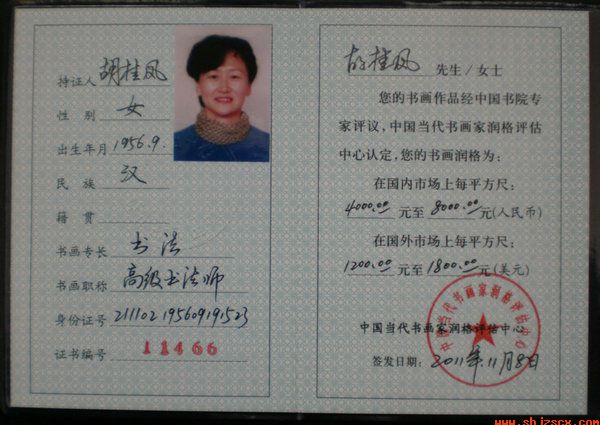 持证人 胡桂凤
性别 女
出生年月 1956.9.
民族 汉
籍贯
书画专长 书法
书画职称 高级书法师
身份证号 211102195609191523
证书编号 11466
胡桂凤 先生/女士
您的书画作品经中国书院专
家评议,中国当代书画家润格评估
中心认定,您的书画润格为:
在国内市场上每平方尺:
4000.00元至8000.00元(人民币)
在国外市场上每平方尺:
1200.00元至1800.00元(美元)
中国当代书画家润格评估中心
中国当代书画家润格评估中心
签发日期: 2011年11月8日
www.shjzscx.com